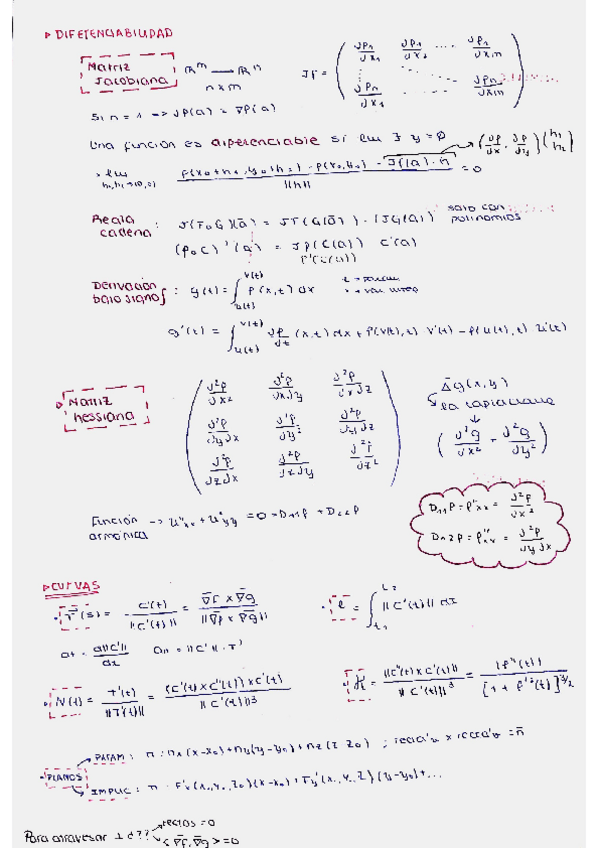 ▸ DIFERENCIABILIDAD
Matriz Jacobiana ℝᵐ → ℝⁿ n x m Jf = ( df₁/dx₁ df₁/dx₂ .... df₁/dxm ; dfn/dx₁ .... dfn/dxm )
Si n = 1 => Jf(a) = ∇f(a)
Una función es diferenciable si lim ∃ y = 0 (df/dx, df/dy)(h₁ h₂)
> lim h₁,h₂→(0,0) f(x₀+h₁, y₀+h₂) - f(x₀,y₀) - Jf(a)·h / ||h|| = 0
Regla cadena : J(F∘G)(ā) = JF(G(ā)) · (JG(ā)) solo con polinomios
(f∘C)'(a) = Jf(C(a)) C'(a)
f'(C(a))
Derivación bajo signo ∫ : g(t) = ∫ u(t) v(t) f(x,t) dx
g'(t) = ∫ u(t) v(t) df/dt (x,t) dx + f(v(t),t) v'(t) - f(u(t),t) u'(t)
Matriz hessiana ( d²f/dx² d²f/dxdy d²f/dxdz ; d²f/dydx d²f/dy² d²f/dydz ; d²f/dzdx d²f/dxdy d²f/dz² )
Δg(x,y)
↳ la laplaciana
( d²g/dx² + d²g/dy² )
Función armónica -> u''xx + u''yy = 0 = D₁₁f + D₂₂f
D₁₁f = f''xx = d²f/dx²
D₁₂f = f''xy = d²f/dydx
▸ CURVAS
T(s) = C'(t)/||C'(t)|| = ∇f x ∇g / ||∇f x ∇g||
ℓ = ∫ t₁ t₂ ||C'(t)|| dt
at = d||C'||/dt an = ||C'|| · T'
N(t) = T'(t)/||T'(t)|| = (C'(t) x C''(t)) x C'(t) / ||C'(t)||³
K = ||C''(t) x C'(t)|| / ||C'(t)||³ = |f''(t)| / [1 + f'²(t)]^3/2
PLANOS
PARAM : π : n_x(x-x₀) + n_y(y-y₀) + n_z(z-z₀) ; recta'u x recta'v = n̄
IMPLIC : π : F'x(x₀,y₀,z₀)(x-x₀) + F'y(x₀,y₀,z₀)(y-y₀) + ...
Para atravesar ⊥ d??
rectas = 0
<∇f, ∇g> = 0